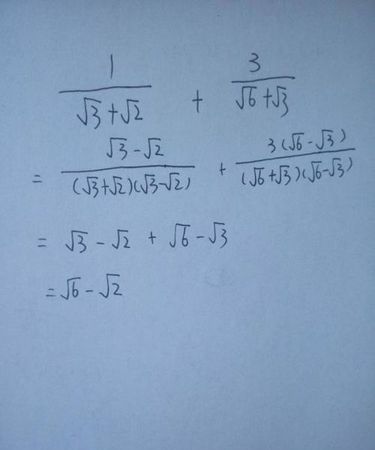 1/(√3+√2) + 3/(√6+√3)
= (√3-√2)/((√3+√2)(√3-√2)) + 3(√6-√3)/((√6+√3)(√6-√3))
= √3-√2 + √6-√3
=√6-√2